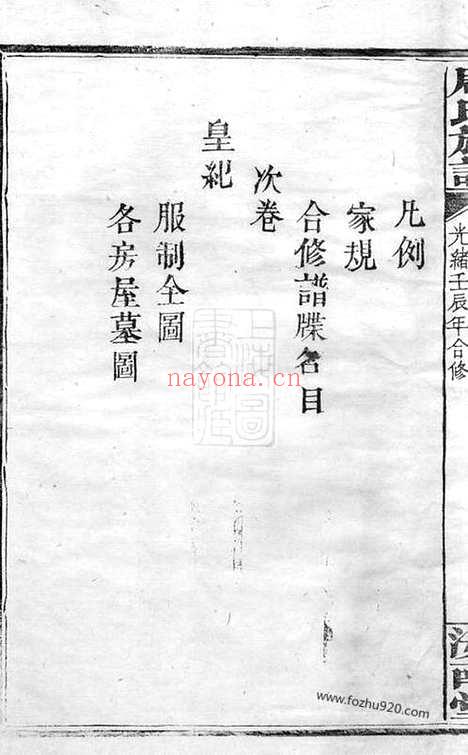 周氏族譜
光緒壬辰年合修
凡例
家規
合修譜牒名目
次卷
皇紀
服制全圖
各房屋墓圖
nayona.cn
www.fozhu920.com